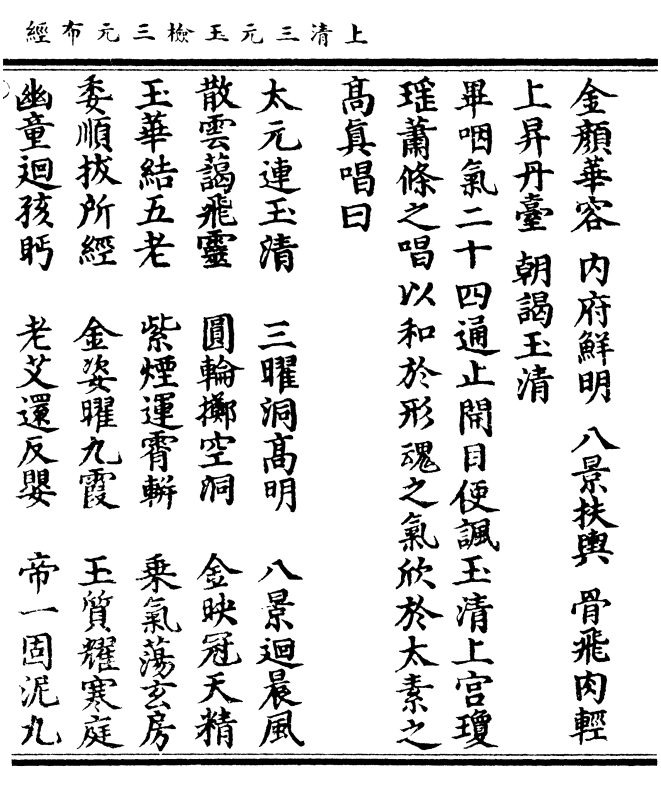 上清三元玉檢三元布經
金顏華容　內府鮮明　八景扶輿　骨飛肉輕
上昇丹臺　朝謁玉清
畢咽氣二十四通止開目便諷玉清上宮瓊
瑤蕭條之唱以和於形魂之氣欣於太素之
高真唱曰
太元連玉清　三曜洞高明　八景迴晨風
散雲藹飛靈　圓輪擲空洞　金映冠天精
玉華結五老　紫煙運霄軿　乘氣蕩玄房
委順拔所經　金姿曜九霞　玉質耀寒庭
幽童迴孩眄　老艾還反嬰　帝一固泥丸